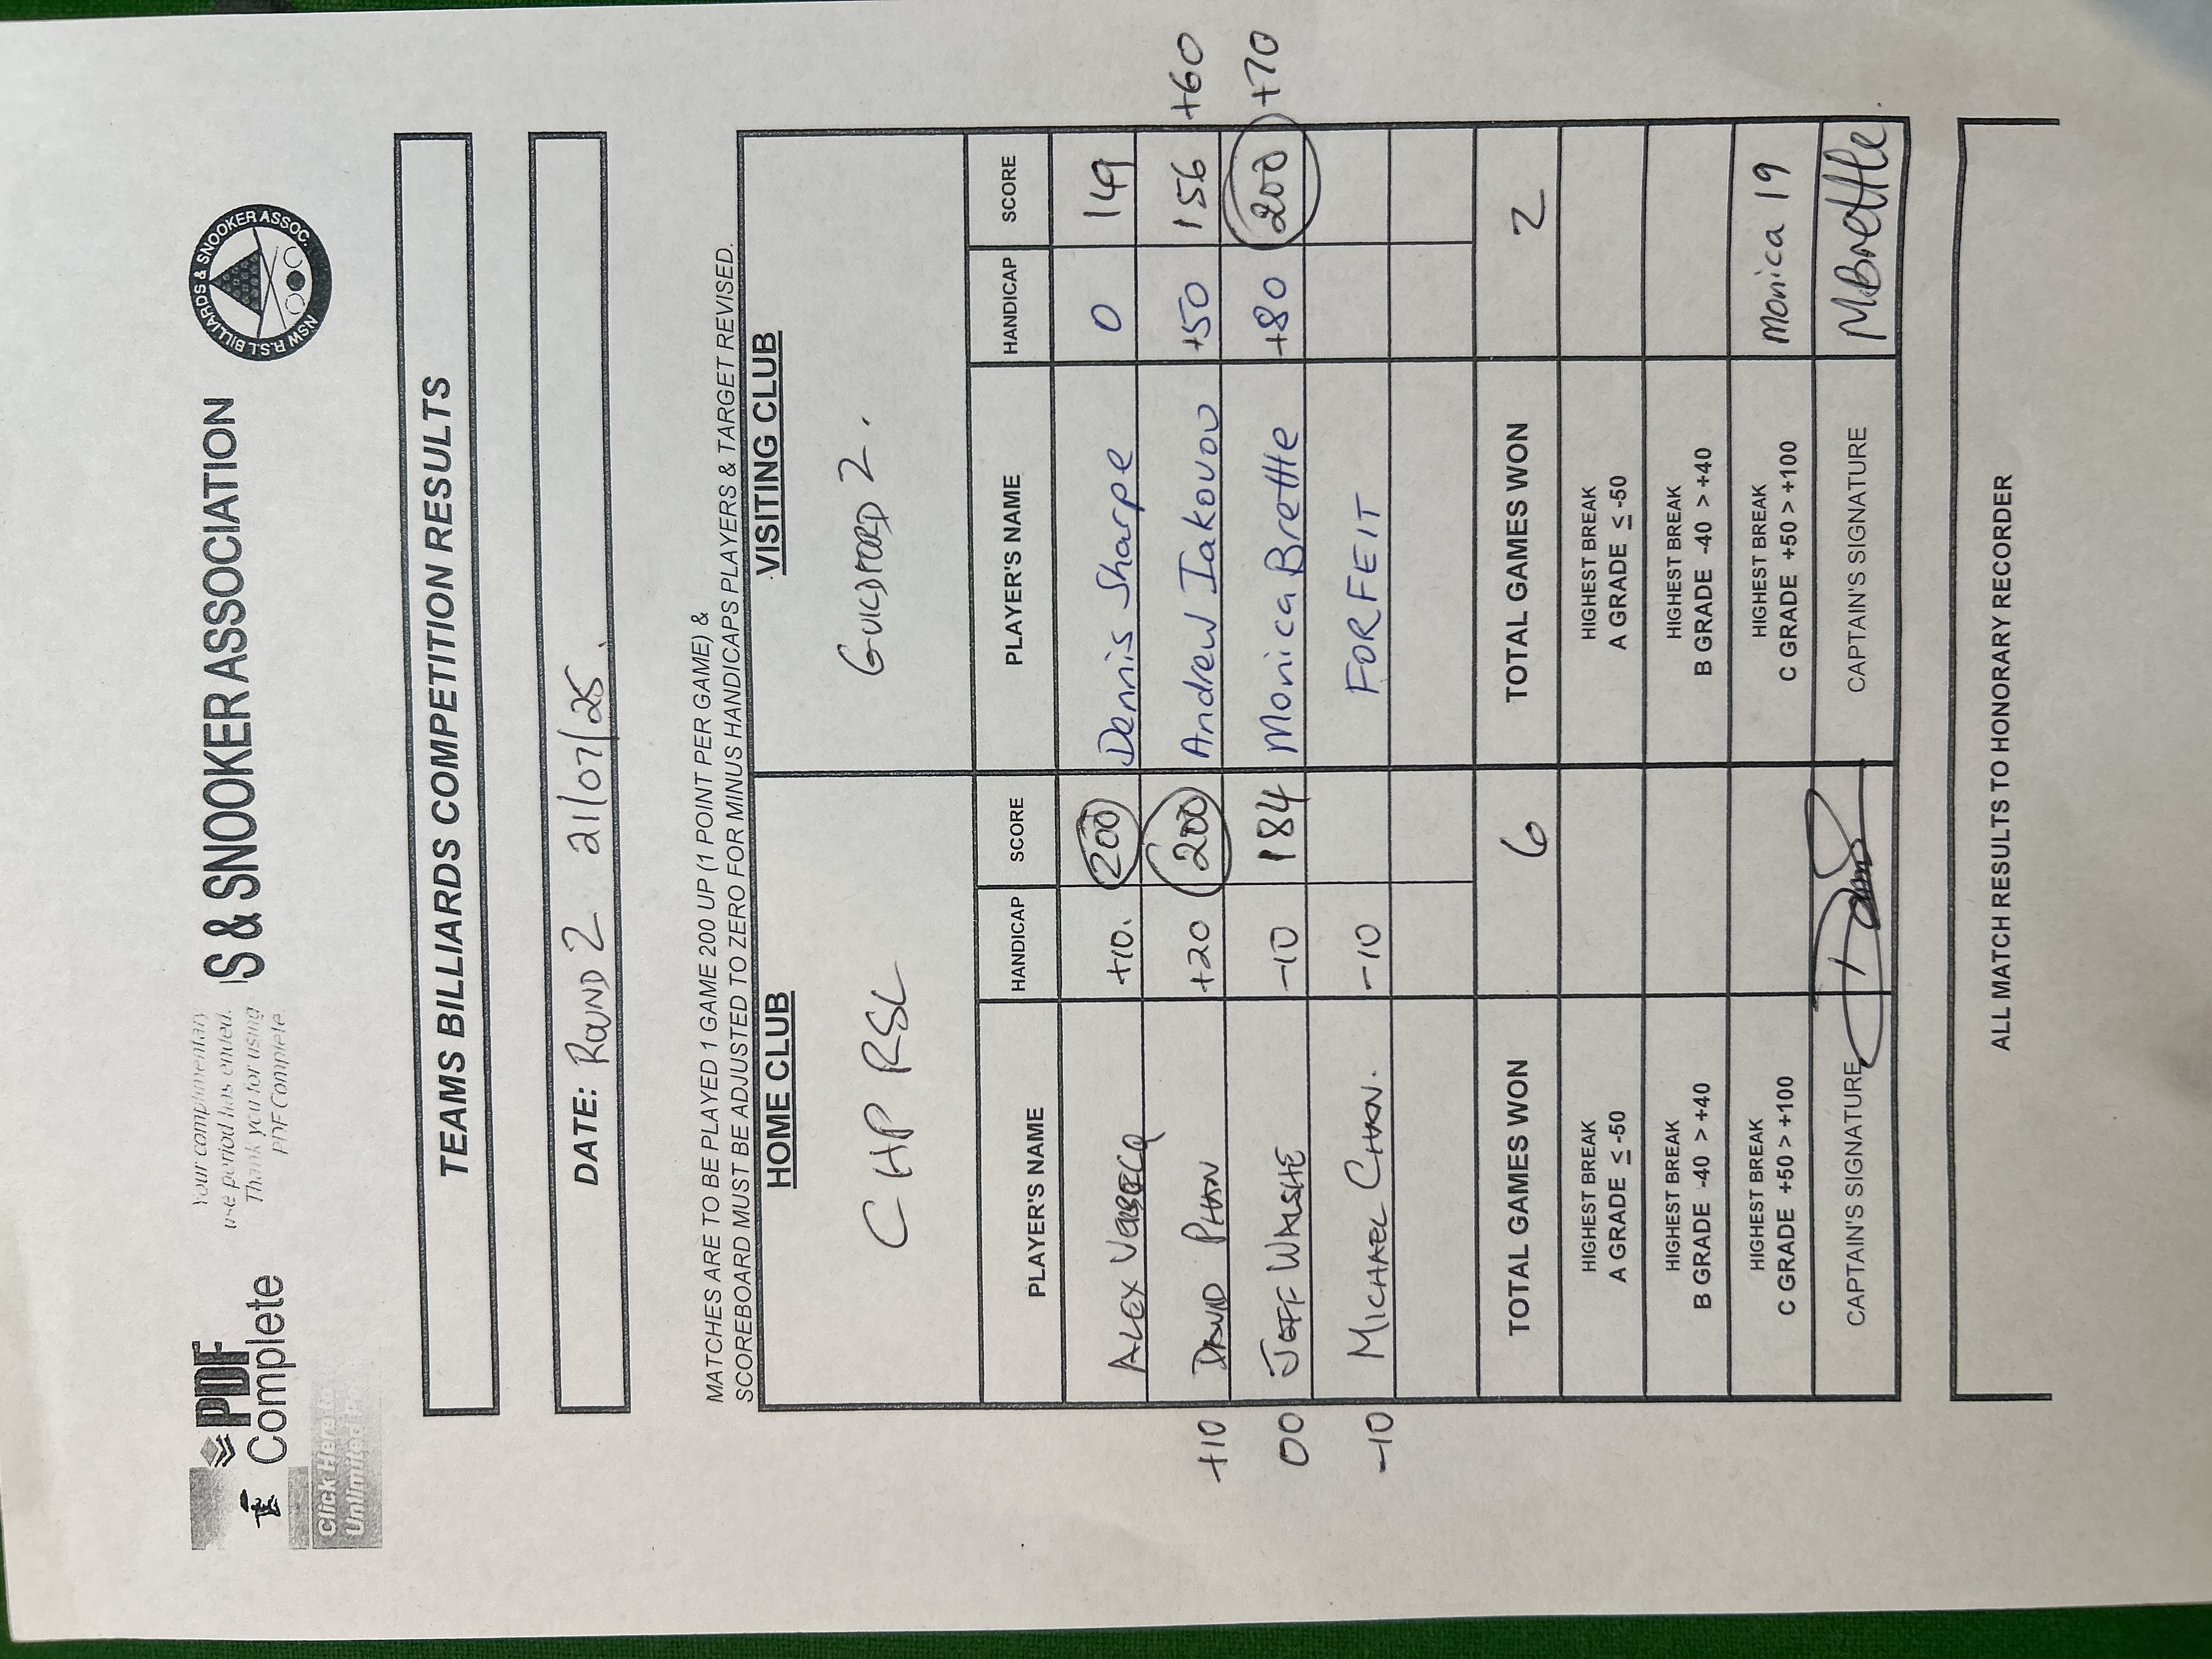 Your complimentary
use period has ended.
Thank you for using
PDF Complete.
PDF
Complete
Click Here
Unlimited P
S & SNOOKER ASSOCIATION
NSW R.S.L BILLIARDS & SNOOKER ASSOC.
TEAMS BILLIARDS COMPETITION RESULTS
DATE: ROUND 2 21/07/25.
MATCHES ARE TO BE PLAYED 1 GAME 200 UP (1 POINT PER GAME) &
SCOREBOARD MUST BE ADJUSTED TO ZERO FOR MINUS HANDICAPS PLAYERS & TARGET REVISED.
HOME CLUB VISITING CLUB
CHP RSL GUILDFORD 2.
PLAYER'S NAME HANDICAP SCORE PLAYER'S NAME HANDICAP SCORE
ALEX +10. 200 Dennis Sharpe 0 149
+10 DAVID PHAN +20 200 Andrew Iakovou +50 156 +60
00 JEFF WALSHE -10 184 Monica Brettle +80 200 +70
-10 MICHAEL CHAN. -10 FORFEIT
TOTAL GAMES WON 6 TOTAL GAMES WON 2
HIGHEST BREAK HIGHEST BREAK
A GRADE ≤ -50 A GRADE ≤ -50
HIGHEST BREAK HIGHEST BREAK
B GRADE -40 > +40 B GRADE -40 > +40
HIGHEST BREAK HIGHEST BREAK
C GRADE +50 > +100 C GRADE +50 > +100 Monica 19
CAPTAIN'S SIGNATURE CAPTAIN'S SIGNATURE MBrettle
ALL MATCH RESULTS TO HONORARY RECORDER